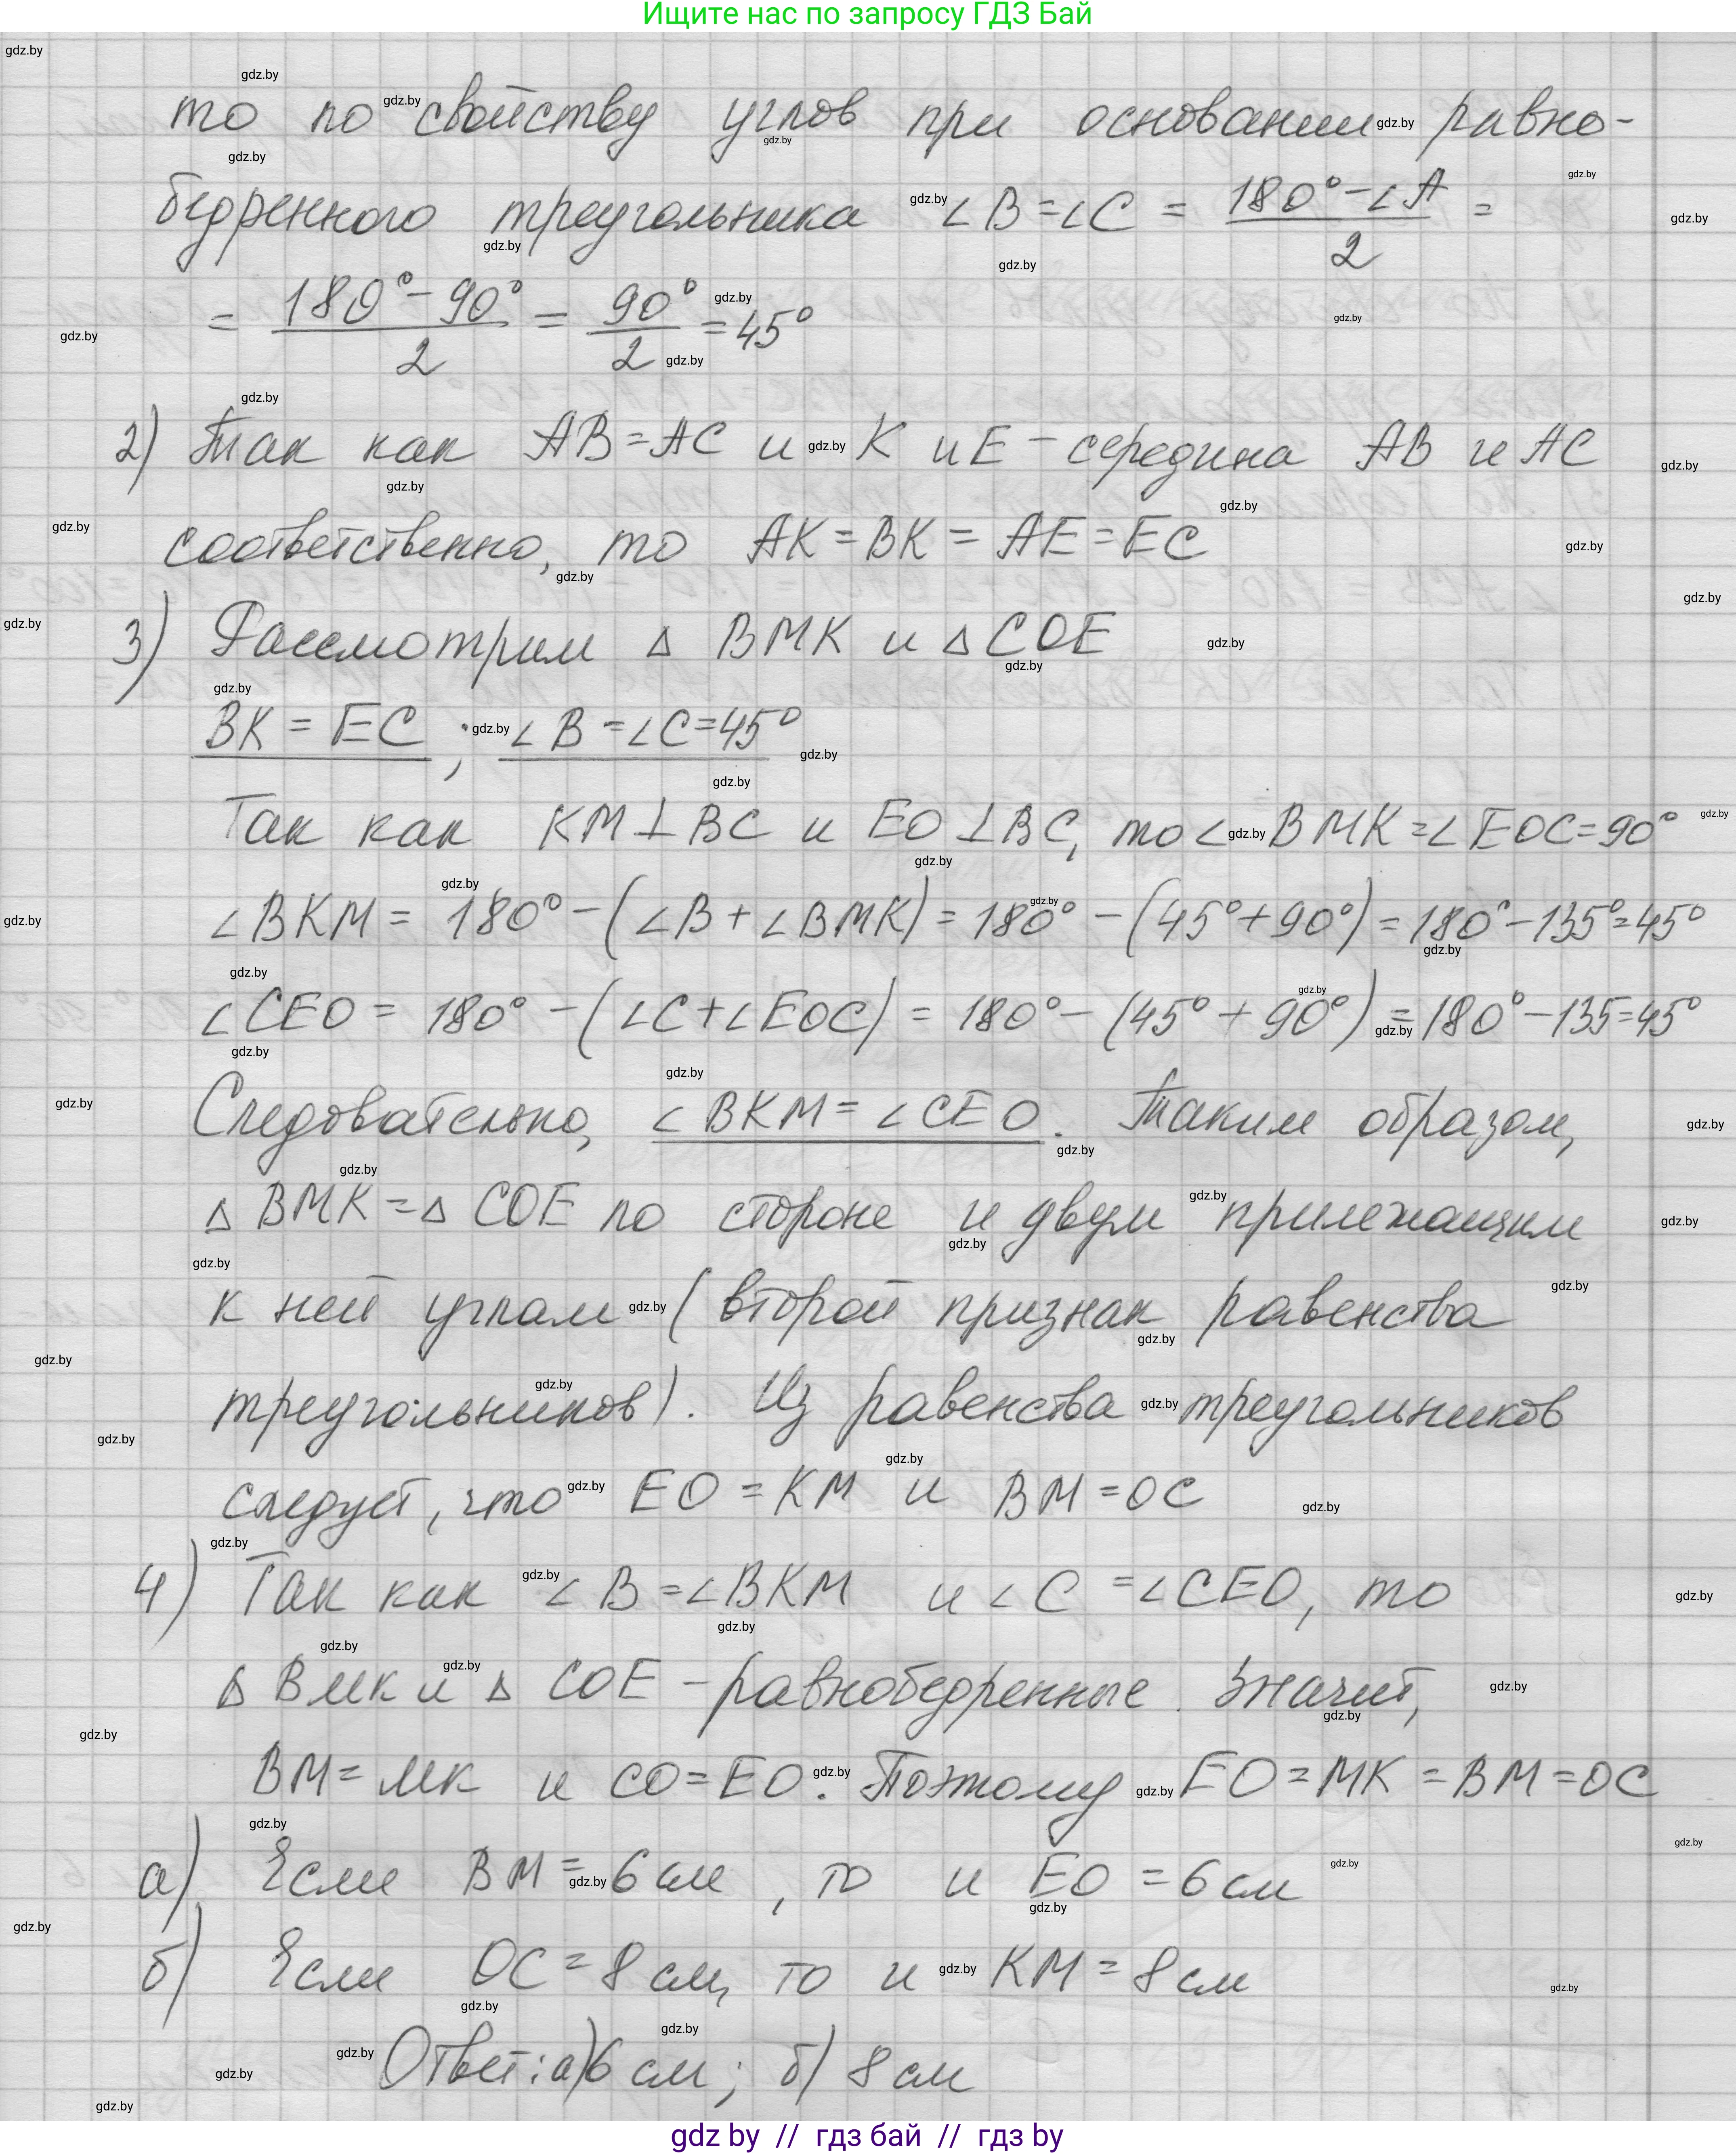 Ищите нас по запросу ГДЗ Бай
то по свойству углов при основании равно-
бедренного треугольника ∠B = ∠C = (180° - ∠A)/2 =
= (180° - 90°)/2 = 90°/2 = 45°
2) Так как AB = AC и K и E - середина AB и AC
соответственно, то AK = BK = AE = EC
3) Рассмотрим △ BMK и △ COE
BK = EC ; ∠B = ∠C = 45°
Так как KM ⊥ BC и EO ⊥ BC, то ∠BMK = ∠EOC = 90°
∠BKM = 180° - (∠B + ∠BMK) = 180° - (45° + 90°) = 180° - 135° = 45°
∠CEO = 180° - (∠C + ∠EOC) = 180° - (45° + 90°) = 180° - 135 = 45°
Следовательно, ∠BKM = ∠CEO. Таким образом,
△ BMK = △ COE по стороне и двум прилежащим
к ней углам (второй признак равенства
треугольников). Из равенства треугольников
следует, что EO = KM и BM = OC
4) Так как ∠B = ∠BKM и ∠C = ∠CEO, то
△ BMK и △ COE - равнобедренные. Значит,
BM = MK и CO = EO. Поэтому EO = MK = BM = OC
а) Если BM = 6 см, то и EO = 6 см
б) Если OC = 8 см, то и KM = 8 см
Ответ: а) 6 см; б) 8 см
gdz by // гдз бай // гдз by